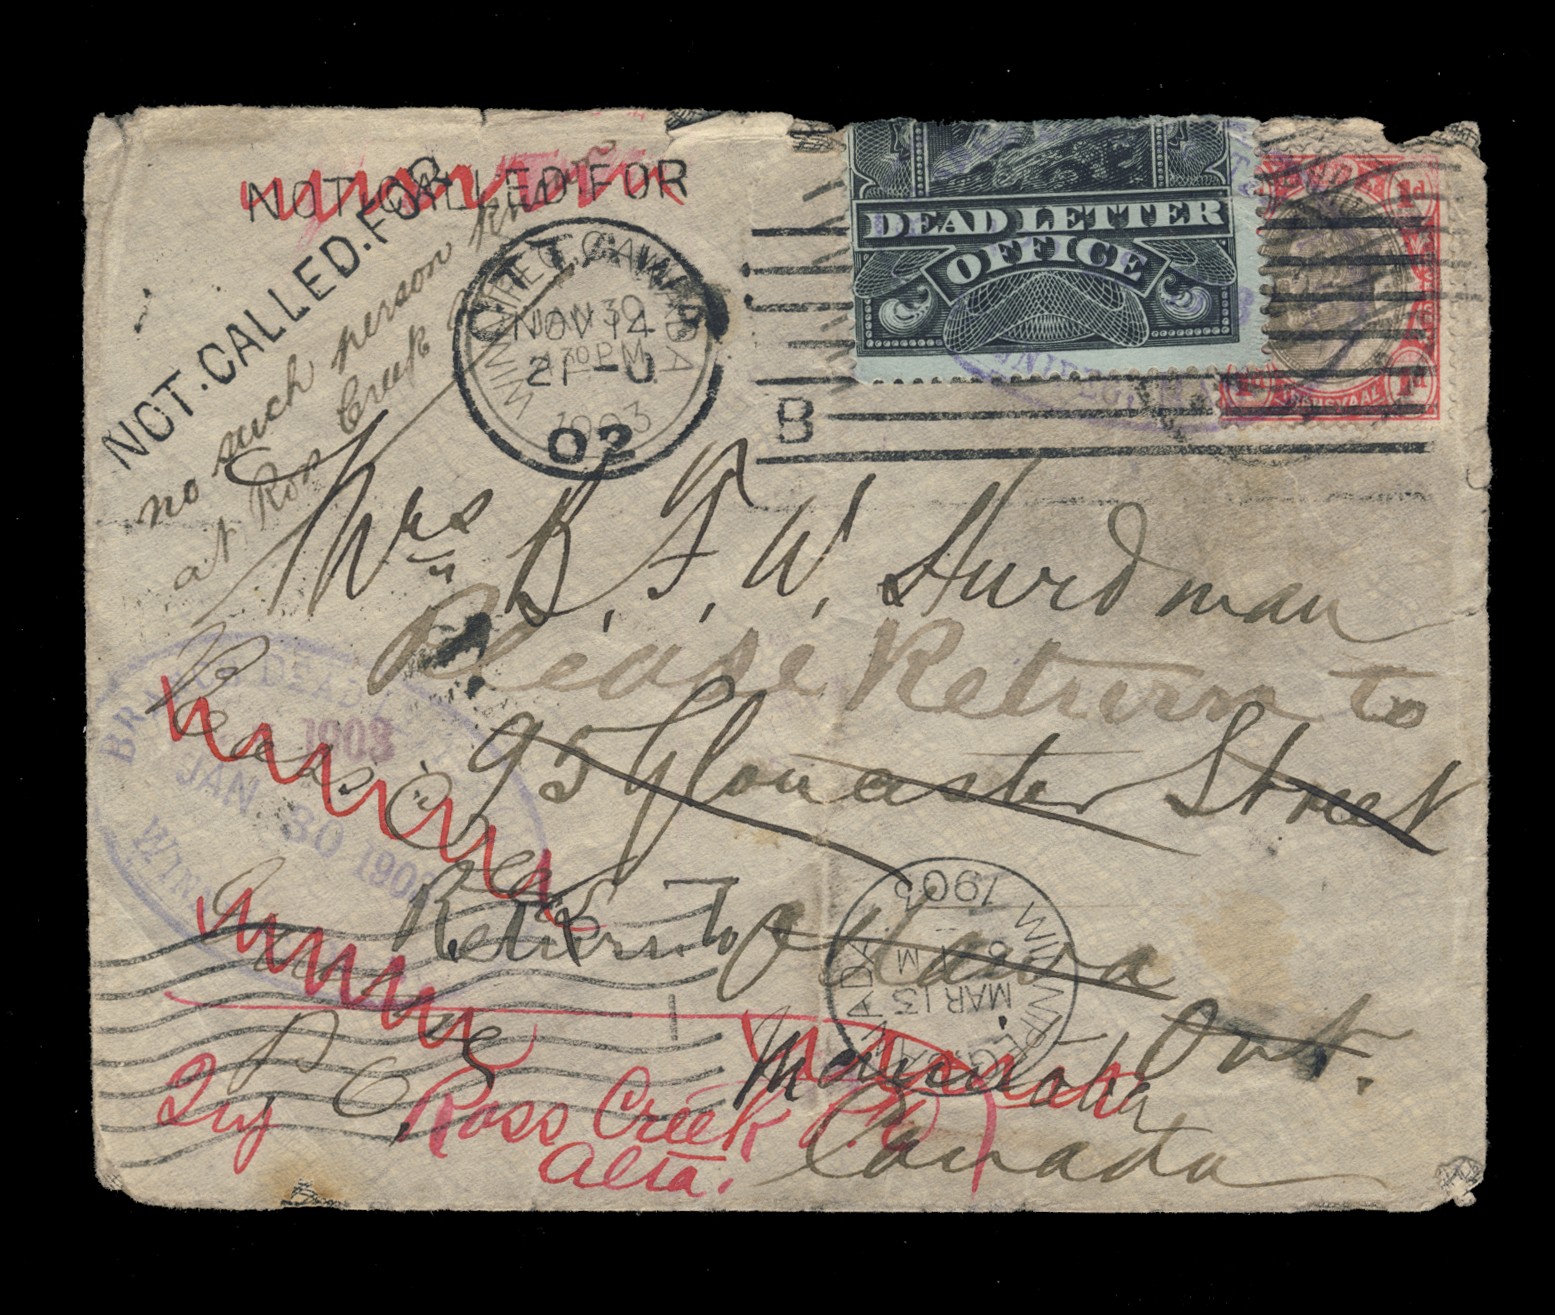 NOT CALLED FOR
NOT.CALLED.FOR
no such person known
at Ross Creek
OTTAWA
NOV 14
21-0
02
WINNIPEG, CANADA
JAN 30
PM
1903
B
DEAD LETTER
OFFICE
1d
1d
1d
TRANSVAAL
Mrs B. F. W. Hurdman
Please Return to
95 Gloucester Street
Ottawa
Ont.
Canada
Return To
Manitoba
Ross Creek
P O
BRANCH DEAD LETTER OFFICE
1903
JAN 30 1903
WINNIPEG
WINNIPEG, CANADA
MAR 13
1903
Try Ross Creek P.O.
Alta.